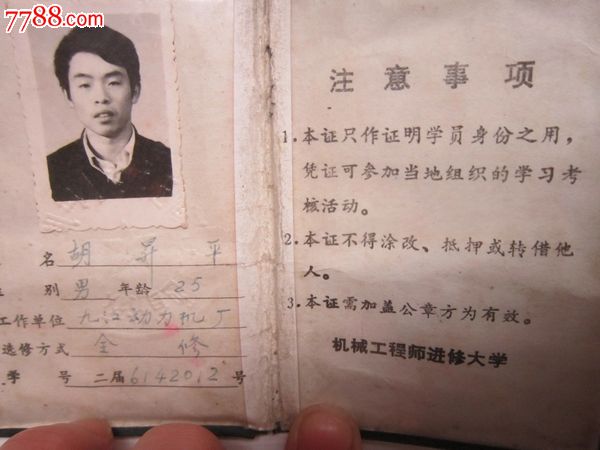 7788.com
名 胡昇平
别 男 年龄 25
工作单位 九江动力机厂
选修方式 全修
学 号 二届6142012号
注意事项
1.本证只作证明学员身份之用，
凭证可参加当地组织的学习考
核活动。
2.本证不得涂改、抵押或转借他
人。
3.本证需加盖公章方为有效。
机械工程师进修大学